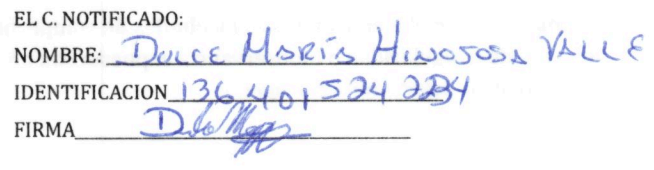 EL C. NOTIFICADO:
NOMBRE: DULCE MARÍA HINOJOSA VALLE
IDENTIFICACION 1364015242234
FIRMA